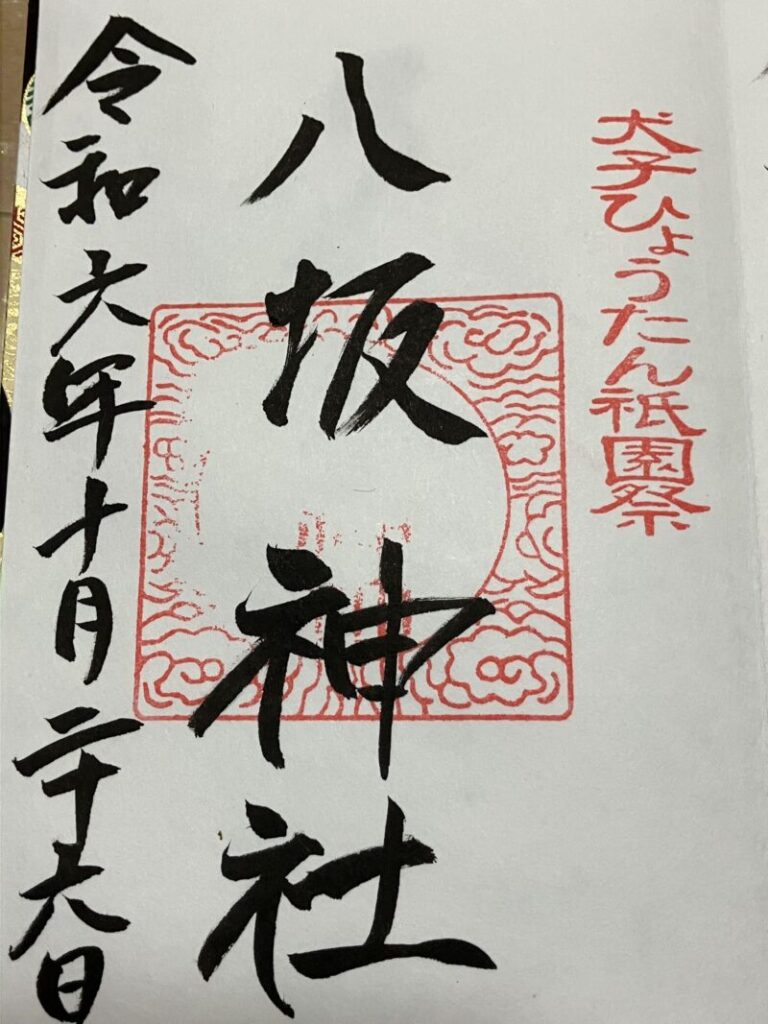 犬子ひょうたん祇園祭
八坂神社
令和六年十月二十六日